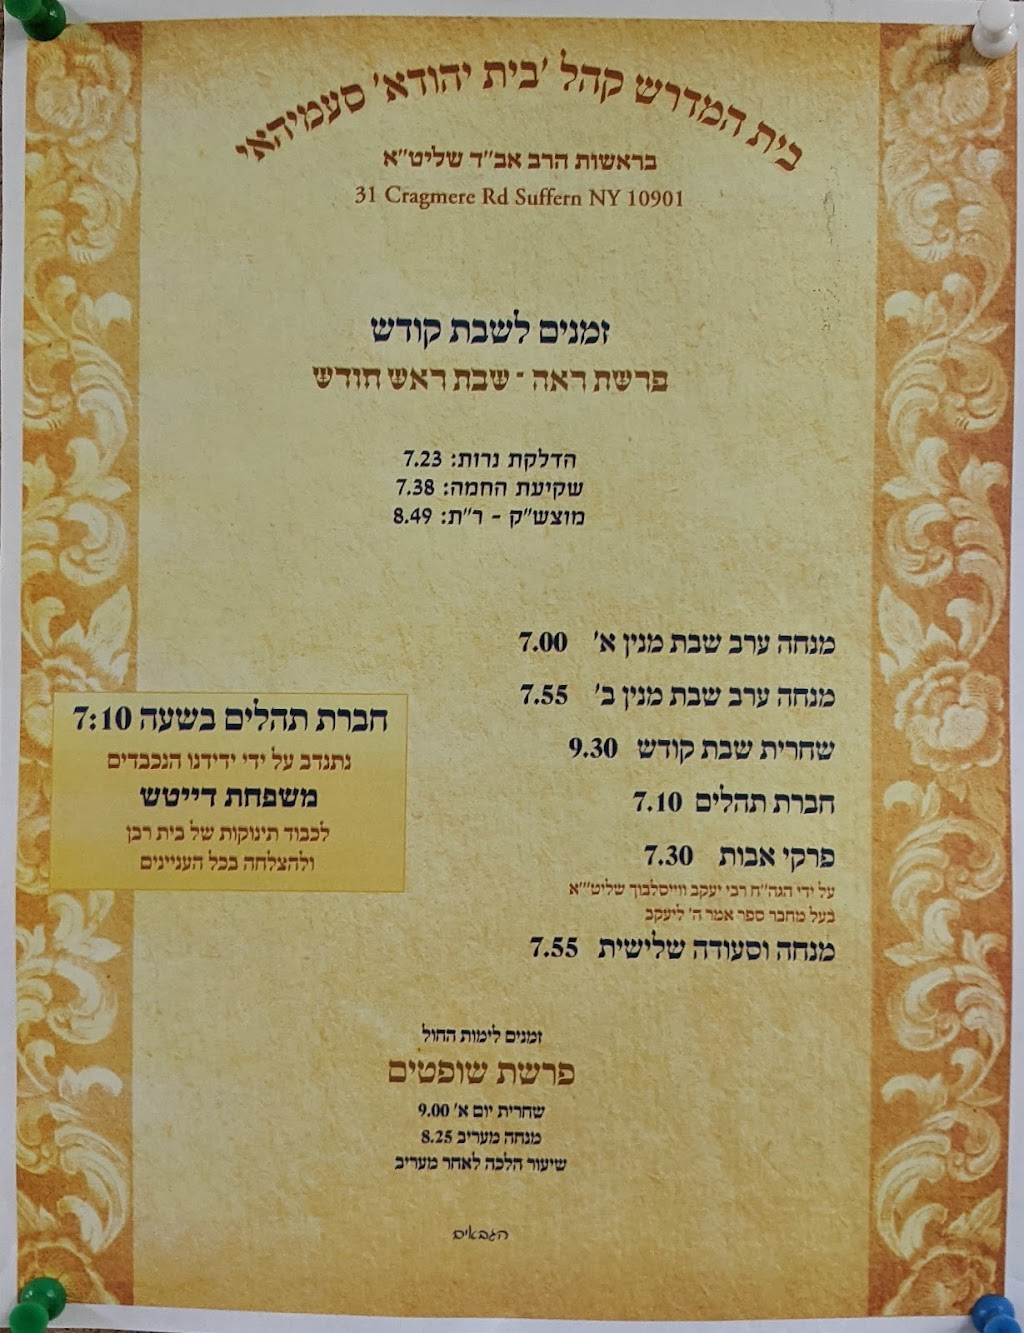 בית המדרש קהל 'בית יהודא' סעמיהאי
בראשות הרב אב"ד שליט"א
31 Cragmere Rd Suffern NY 10901
זמנים לשבת קודש
פרשת ראה - שבת ראש חודש
הדלקת נרות: 7.23
שקיעת החמה: 7.38
מוצש"ק - ר"ת: 8.49
מנחה ערב שבת מנין א' 7.00
מנחה ערב שבת מנין ב' 7.55
שחרית שבת קודש 9.30
חברת תהלים 7.10
פרקי אבות 7.30
על ידי הגה"ח רבי יעקב ווייסלבוך שליט"א
בעל מחבר ספר אמר ה' ליעקב
מנחה וסעודה שלישית 7.55
חברת תהלים בשעה 7:10
נתנדב על ידי ידידנו הנכבדים
משפחת דייטש
לכבוד תינוקות של בית רבן
ולהצלחה בכל הענינים
זמנים לימות החול
פרשת שופטים
שחרית יום א' 9.00
מנחה מעריב 8.25
שיעור הלכה לאחר מעריב
הגבאים